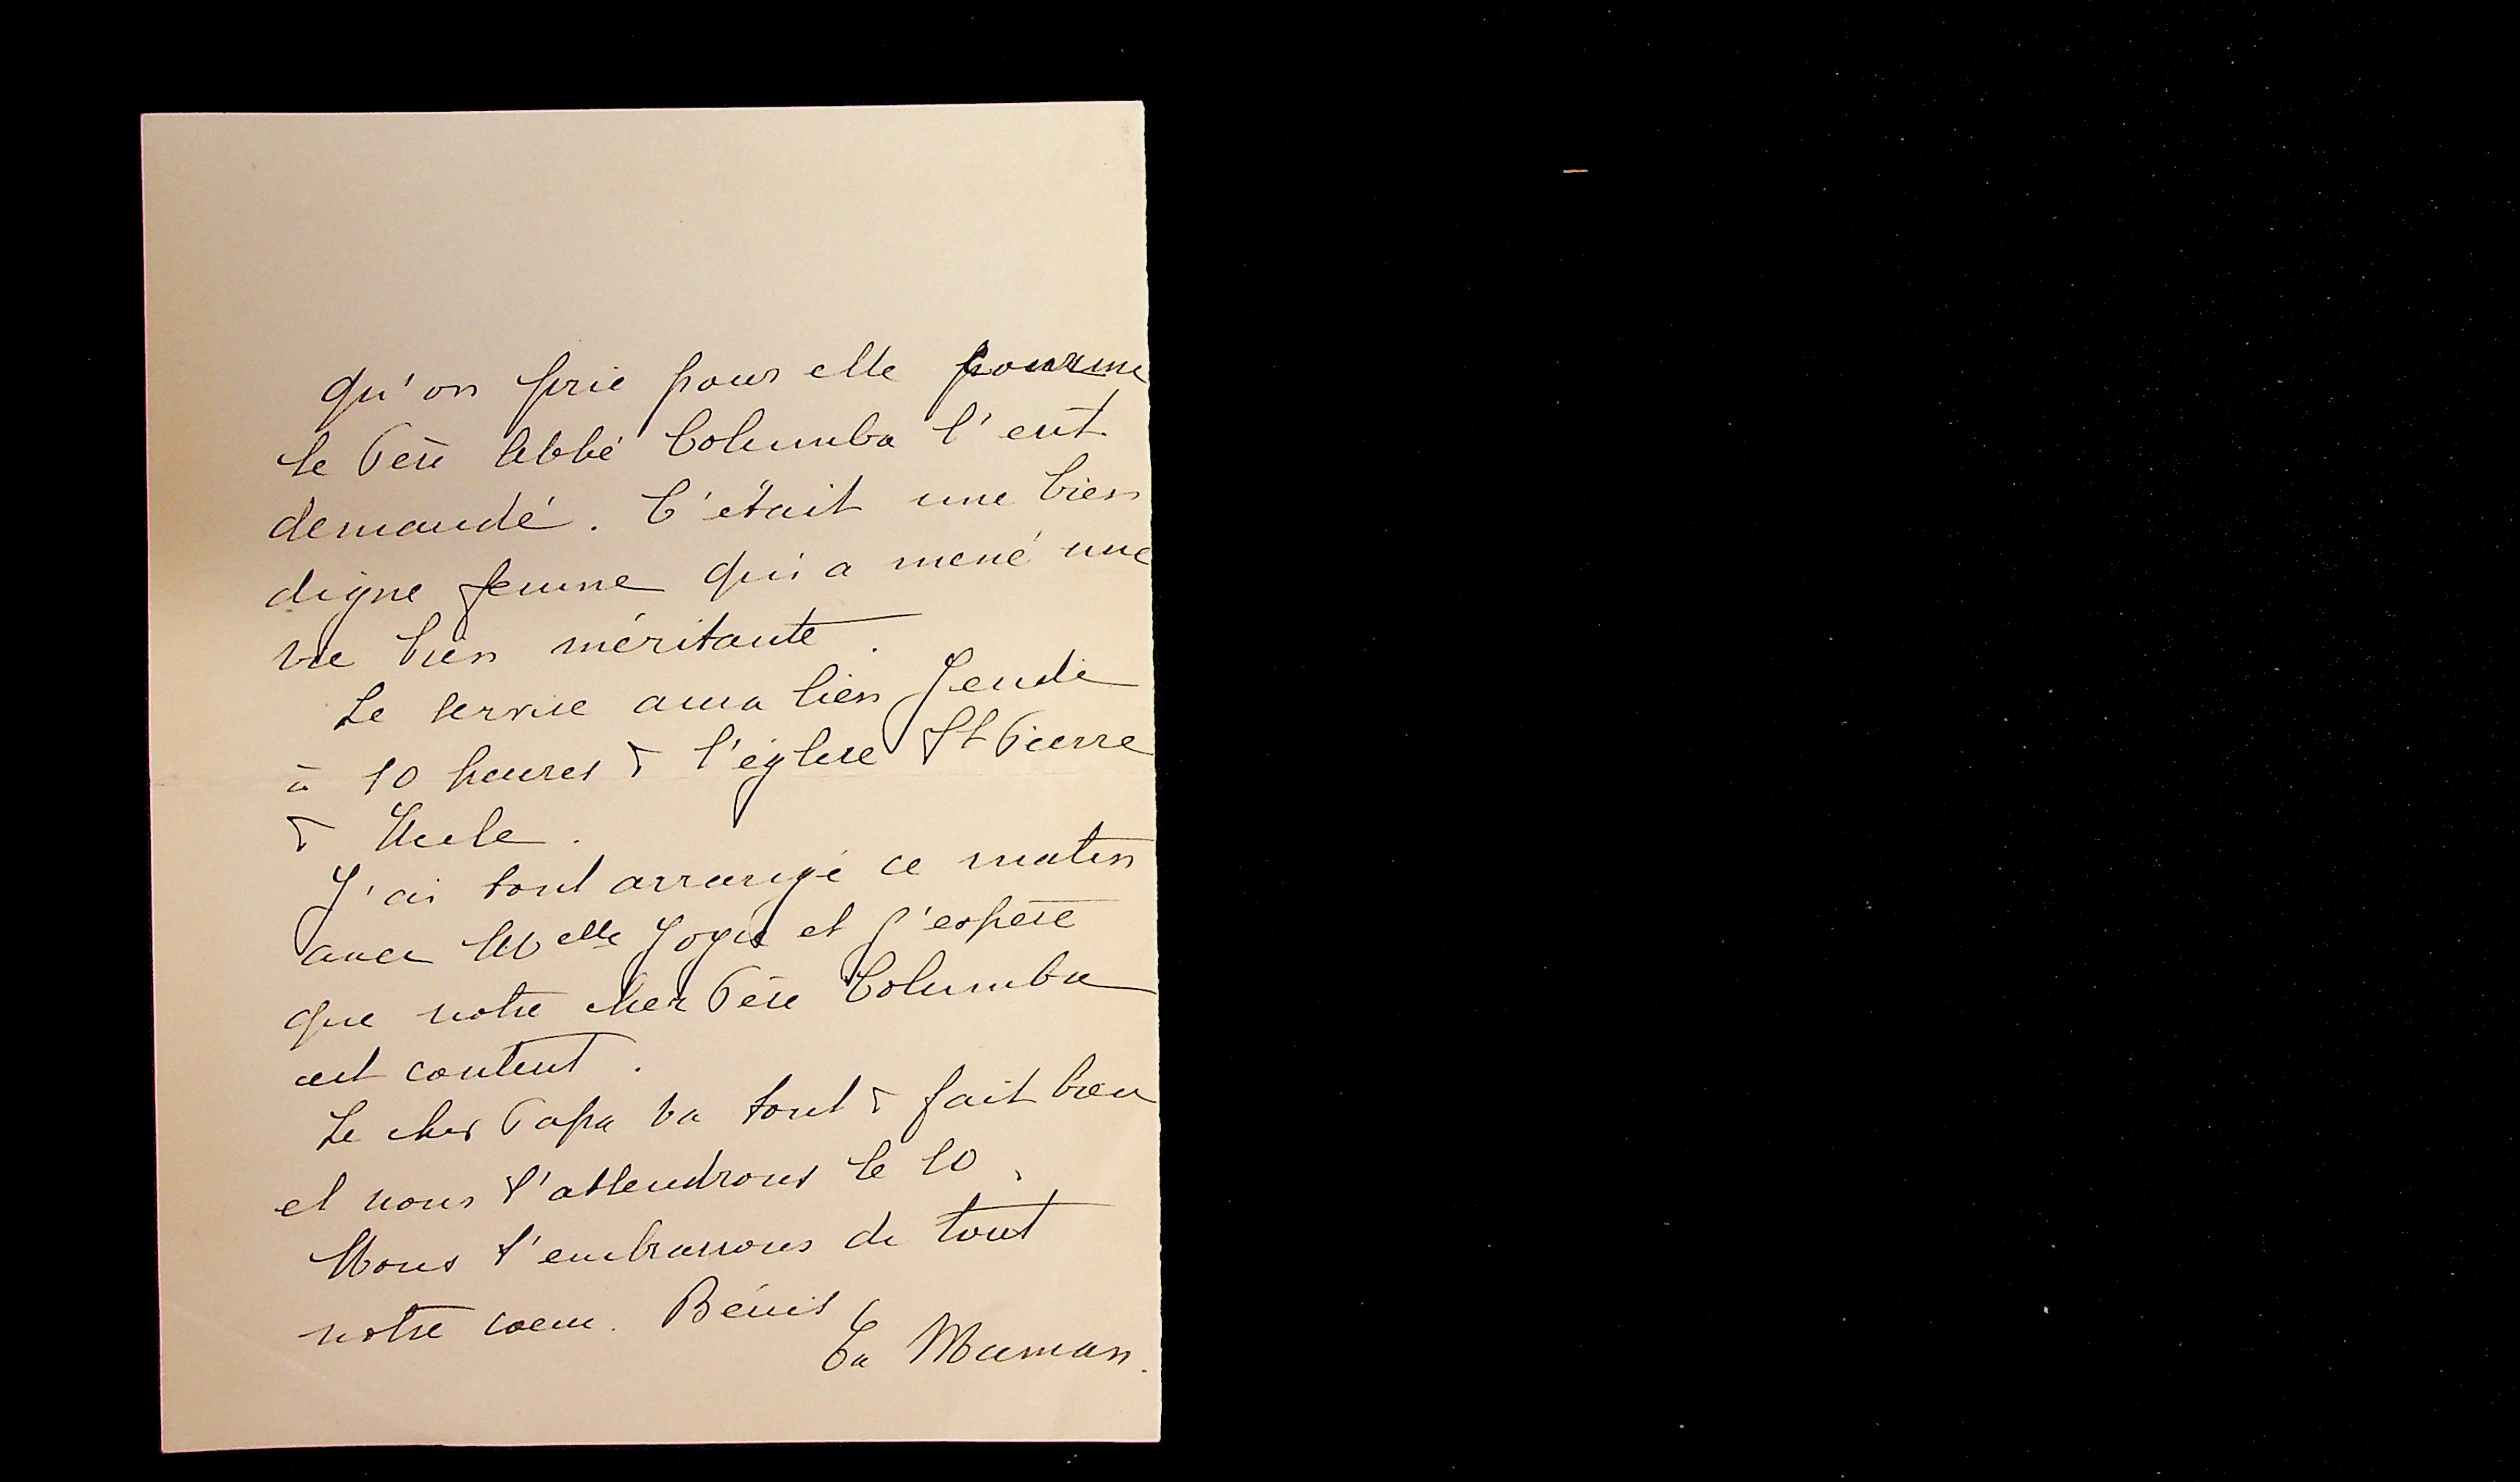 qu'on prie pour elle comme
le Père Abbé Columba l'eut
demandé. C'était une bien
digne femme qui a mené une
vie bien méritante.
Le service aura lieu Jeudi
à 10 heures à l'église St Pierre
à Uccle.
J'ai tout arrangé ce matin
avec Melle et j'espère
que notre cher Père Columba
est content.
Le cher Papa va tout à fait bien
et nous t'attendrons le 10.
Nous t'embrassons de tout
notre coeur. Bénis
Ta Maman.